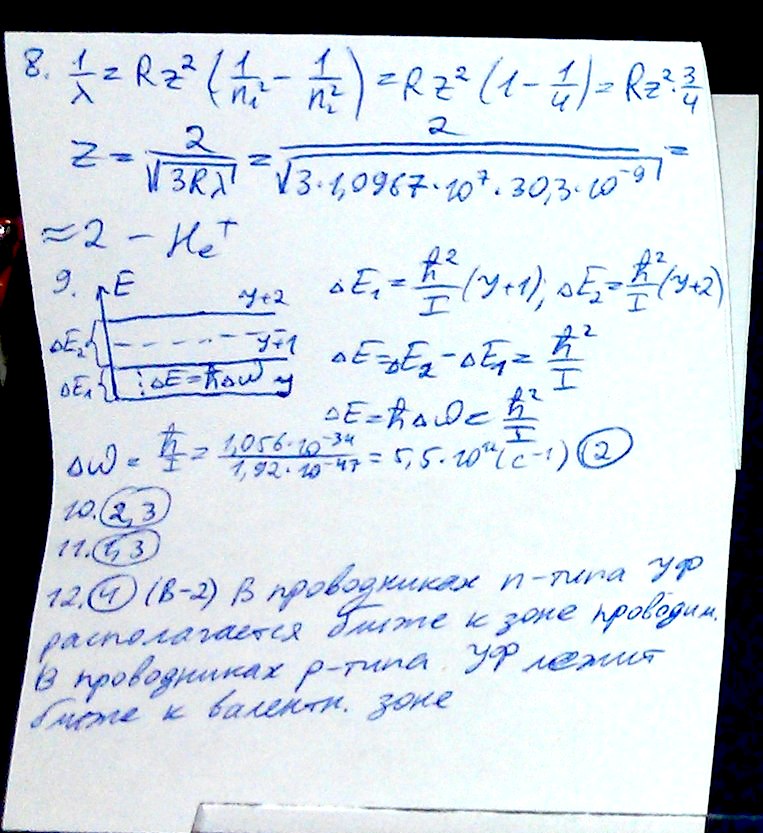 8. 1/λ = Rz² (1/n₁² - 1/n₂²) = Rz² (1 - 1/4) = Rz² · 3/4
Z = 2/√(3Rλ) = 2/√(3·1,0967·10⁷·30,3·10⁻⁹) =
≈ 2 - He⁺
9. E
y+2
y+1
y
ΔE₂
ΔE₁
: ΔE = ħΔω
ΔE₁ = ħ²/I (y+1); ΔE₂ = ħ²/I (y+2)
ΔE = ΔE₂ - ΔE₁ = ħ²/I
ΔE = ħΔω = ħ²/I
Δω = ħ/I = 1,056·10⁻³⁴/1,92·10⁻⁴⁷ = 5,5·10¹² (с⁻¹) 2
10. 2,3
11. 1,3
12. 4 (В-2) В проводниках n-типа УФ
располагается ближе к зоне проводим.
В проводниках p-типа УФ лежит
ближе к валентн. зоне